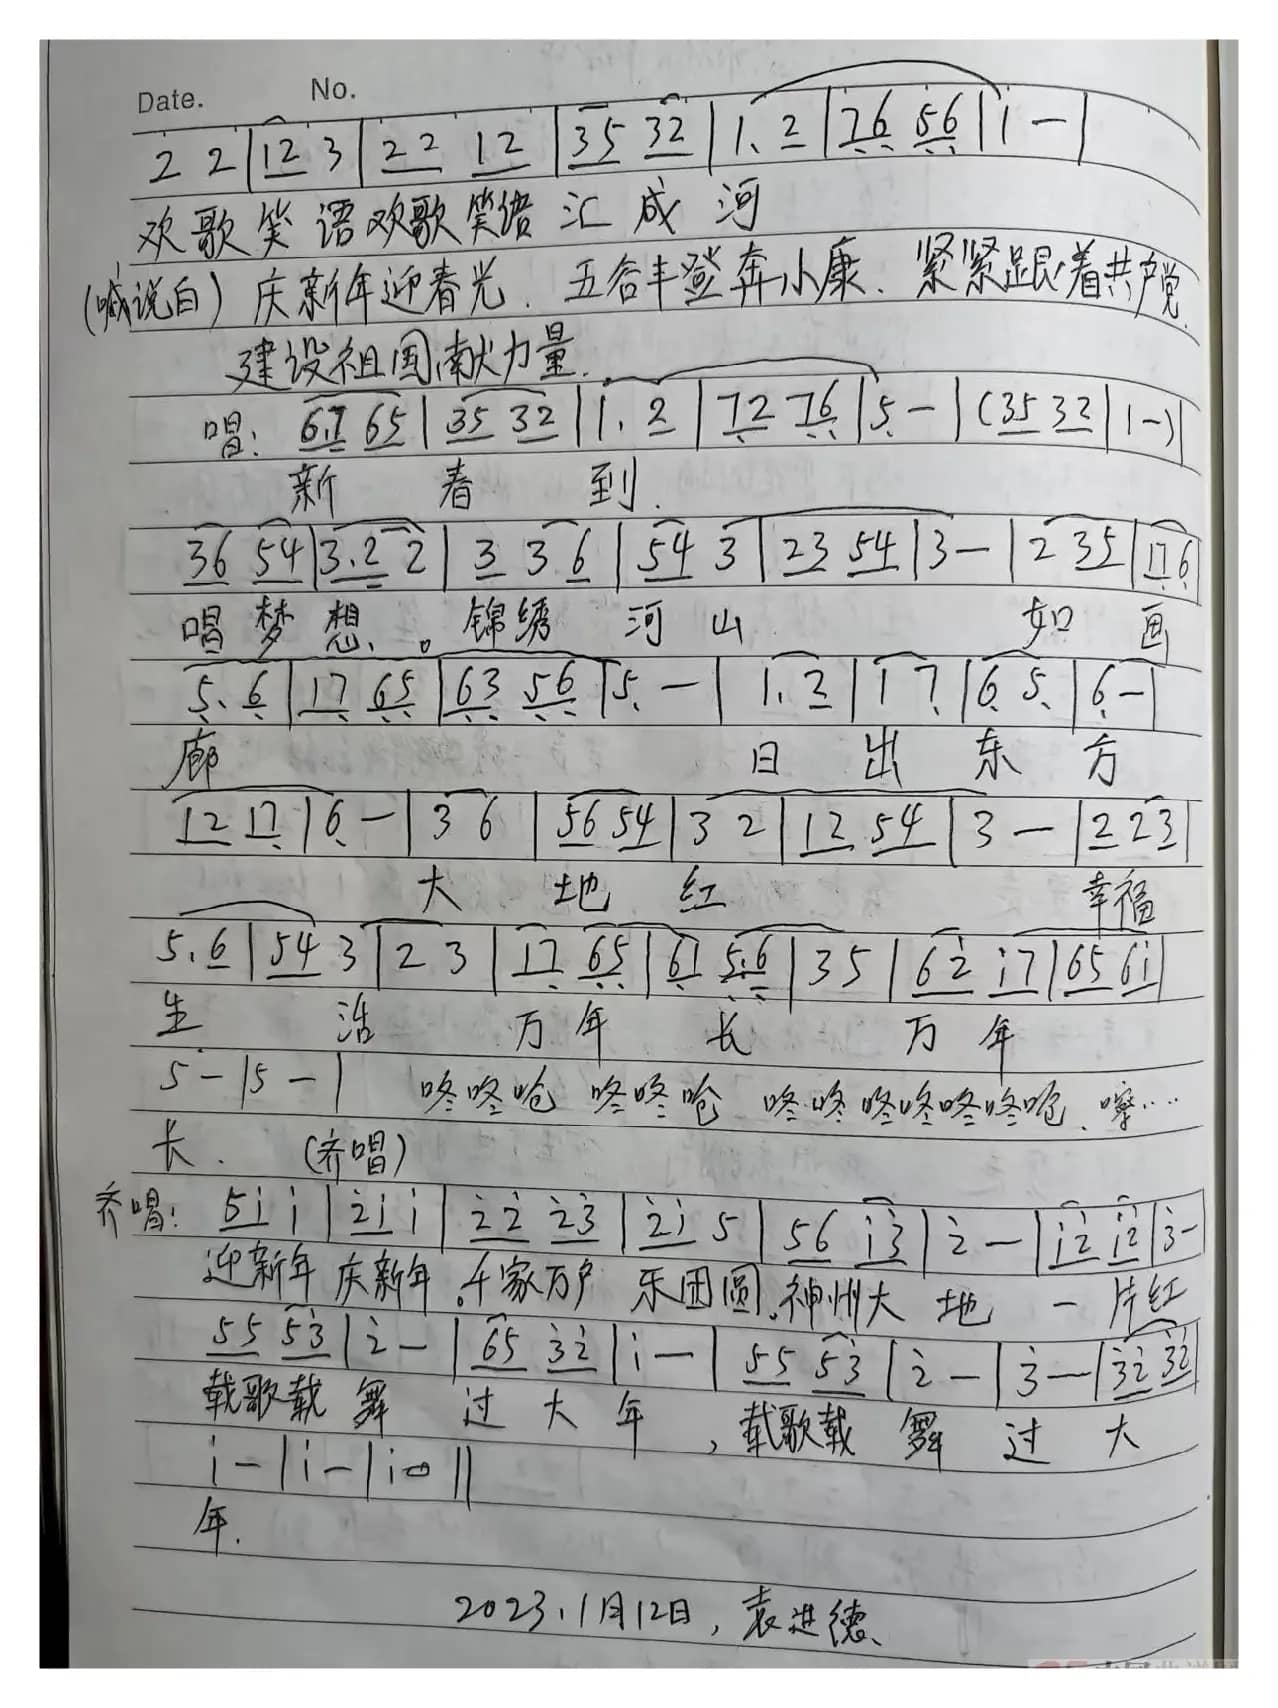 Date. No.
2 2 | 12 3 | 22 12 | 35 32 | 1. 2 | 76 56 | 1 — |
欢歌笑语欢歌笑语汇成河
(喊说白) 庆新年迎春光. 五谷丰登奔小康. 紧紧跟着共产党.
建设祖国献力量.
唱: 6.7 65 | 35 32 | 1. 2 | 72 76 | 5 — | (35 32 | 1 —) |
新春到.
36 54 | 3.2 2 | 3 3 6 | 54 3 | 23 54 | 3 — | 2 35 | 176 |
唱梦想、。锦绣河山 如画
5. 6 | 17 65 | 63 56 | 5 — | 1. 2 | 1 7 | 6 5 | 6 — |
廊 日出东方
12 17 | 6 — | 3 6 | 56 54 | 3 2 | 12 54 | 3 — | 2 2 3 |
大地红 幸福
5. 6 | 54 3 | 2 3 | 17 65 | 61 5.6 | 3 5 | 62 i7 | 65 6i |
生活万年长万年
5 — | 5 — | 咚咚呛 咚咚呛 咚咚咚咚咚咚呛. 嚓……
长. (齐唱)
齐唱: 5i i | 2i i | 22 23 | 2i 5 | 56 i3 | 2 — | i2 i2 | 3 —
迎新年庆新年。千家万户乐团圆.神州大地一片红
55 53 | 2 — | 65 32 | i — | 55 53 | 2 — | 3 — | 32 32 |
载歌载舞过大年, 载歌载舞过大
i — | i — | i 0 ||
年.
2023.1月12日, 袁进德